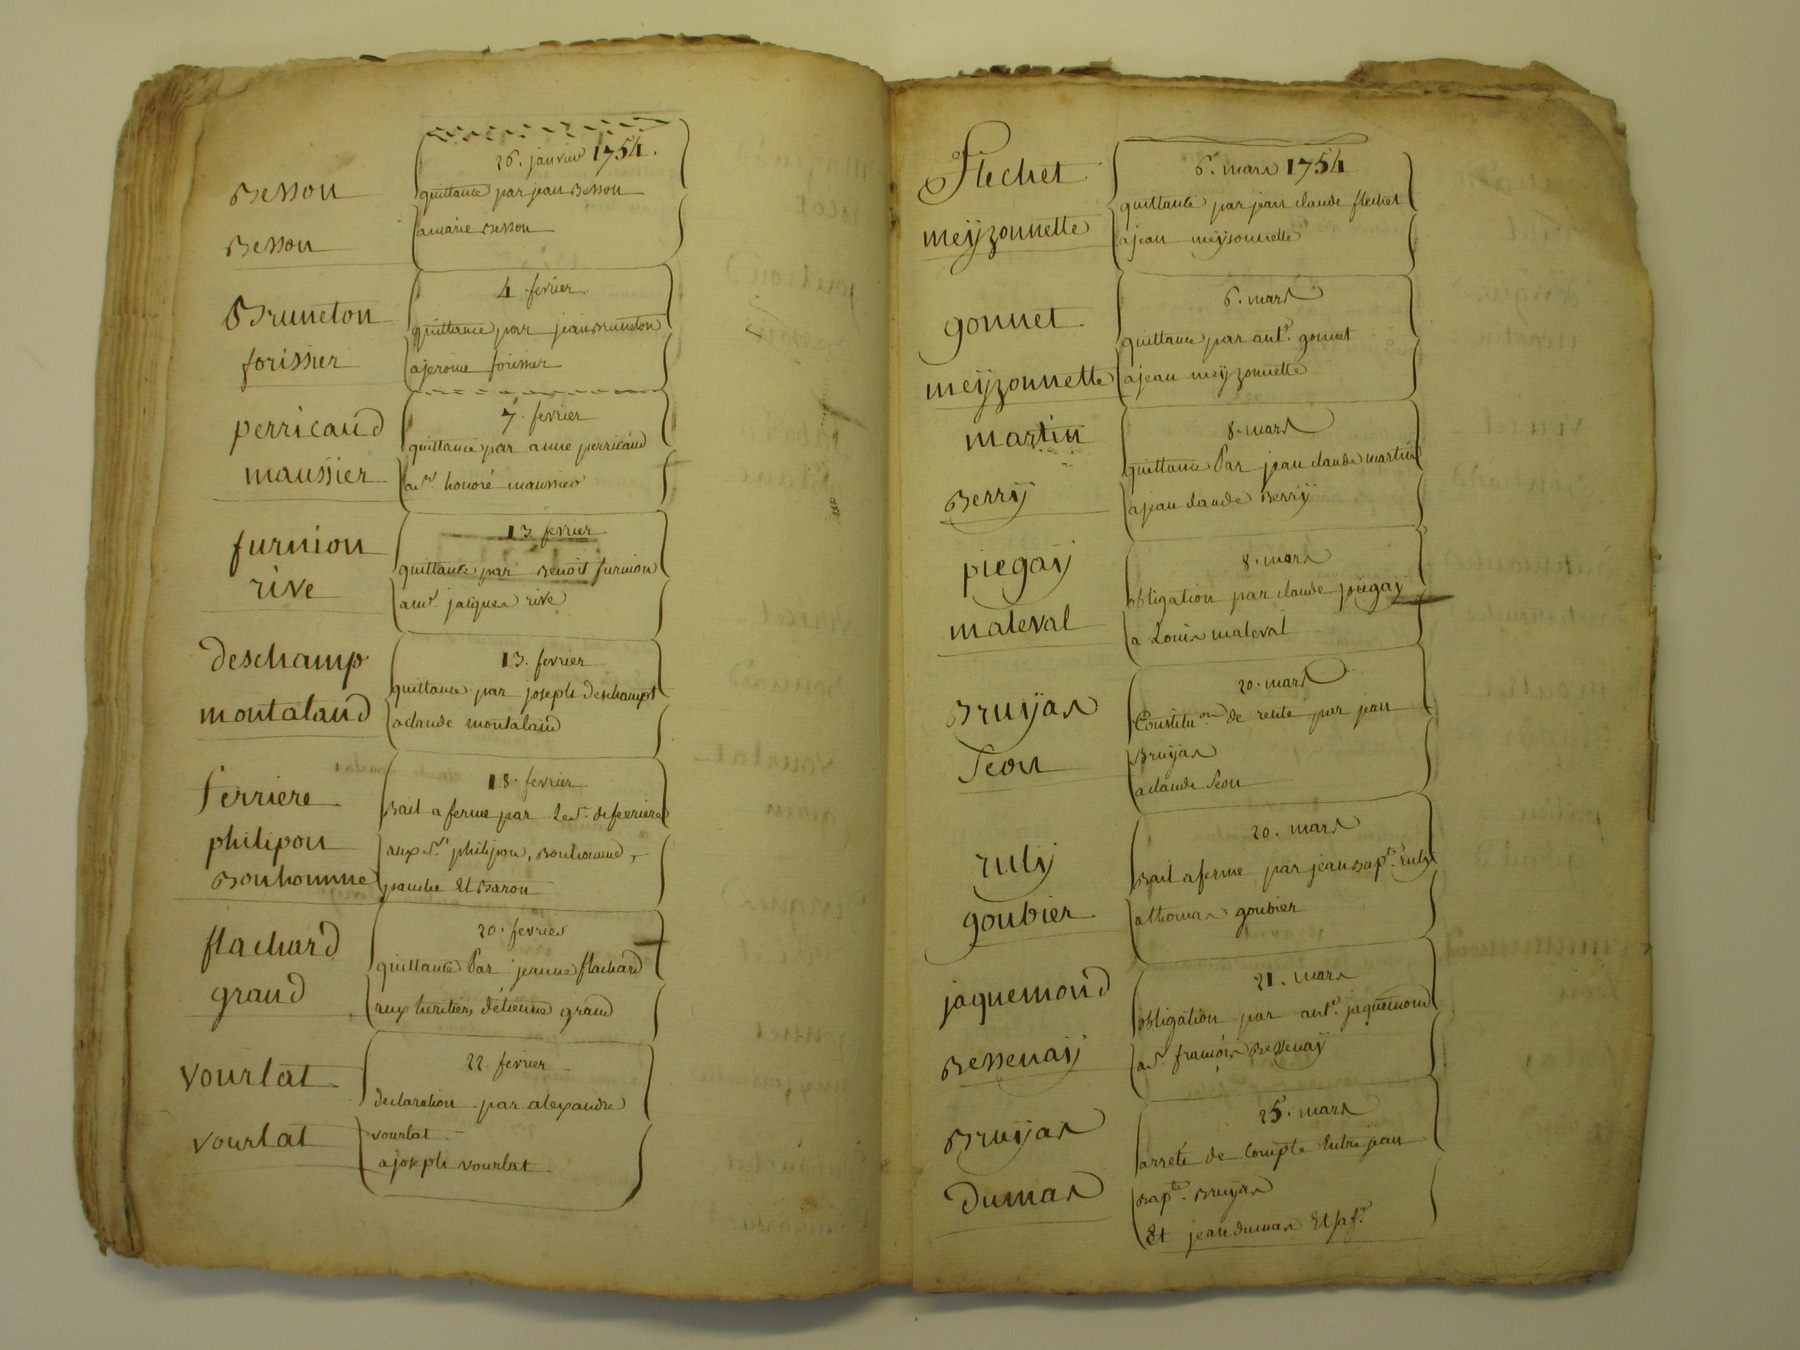 26. janvier 1754.
Besson
quittance par jean Besson
Besson
a marie Besson
4 fevrier
Bruneton
quittance par jean Bruneton
forissier
a jerome forissier
7. fevrier
perricaud
quittance par anne perricaud
maussier
a sr. honoré maussier
13 fevrier
furnion
quittance par Benoit furnion
rive
a mr. jacques rive
13. fevrier
deschamp
quittance par joseph deschamps
montaland
a claude montaland
18. fevrier
ferriere
Bail a ferme par le sr. de ferriere
philipon
aux srs philipon, Bonhomme,
Bonhomme
et Baron
20. fevrier
flachard
quittance Par jeanne flachard
grand
aux heritiers d'etienne grand
22. fevrier
vourlat
declaration par alexandre
vourlat
vourlat
a joseph vourlat
6. mars 1754
Flechet
quittance par jean claude flechet
meÿzonnette
a jean meÿsonnette
6. mars
gonnet
quittance par ant.e gonnet
meÿzonnette
a jean meÿzonnette
8. mars
martin
quittance Par jean claude martin
Berrÿ
a jean claude Berrÿ
8. mars
piegaÿ
obligation par claude piegaÿ
maleval
a Louis maleval
20. mars
Bruÿas
Constitu.on de rente par jean
Seon
Bruÿas
a claude Seon
20. mars
rulÿ
Bail a ferme par jean Bap.te rulÿ
goubier
a thomas goubier
21. mars
jaquemond
obligation par ant.e jaquemond
Bessenaÿ
a sr. francois Bessenaÿ
25. mars
Bruÿas
arreté de Compte Entre jean
Dumas
Bap.te Bruÿas
Et jean dumas Et sa f.e